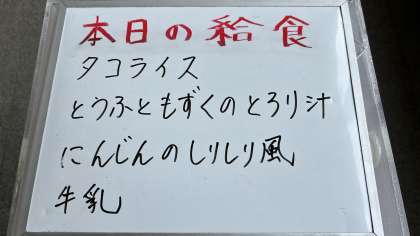 本日の給食
タコライス
とうふともずくのとろり汁
にんじんのしりしり風
牛乳